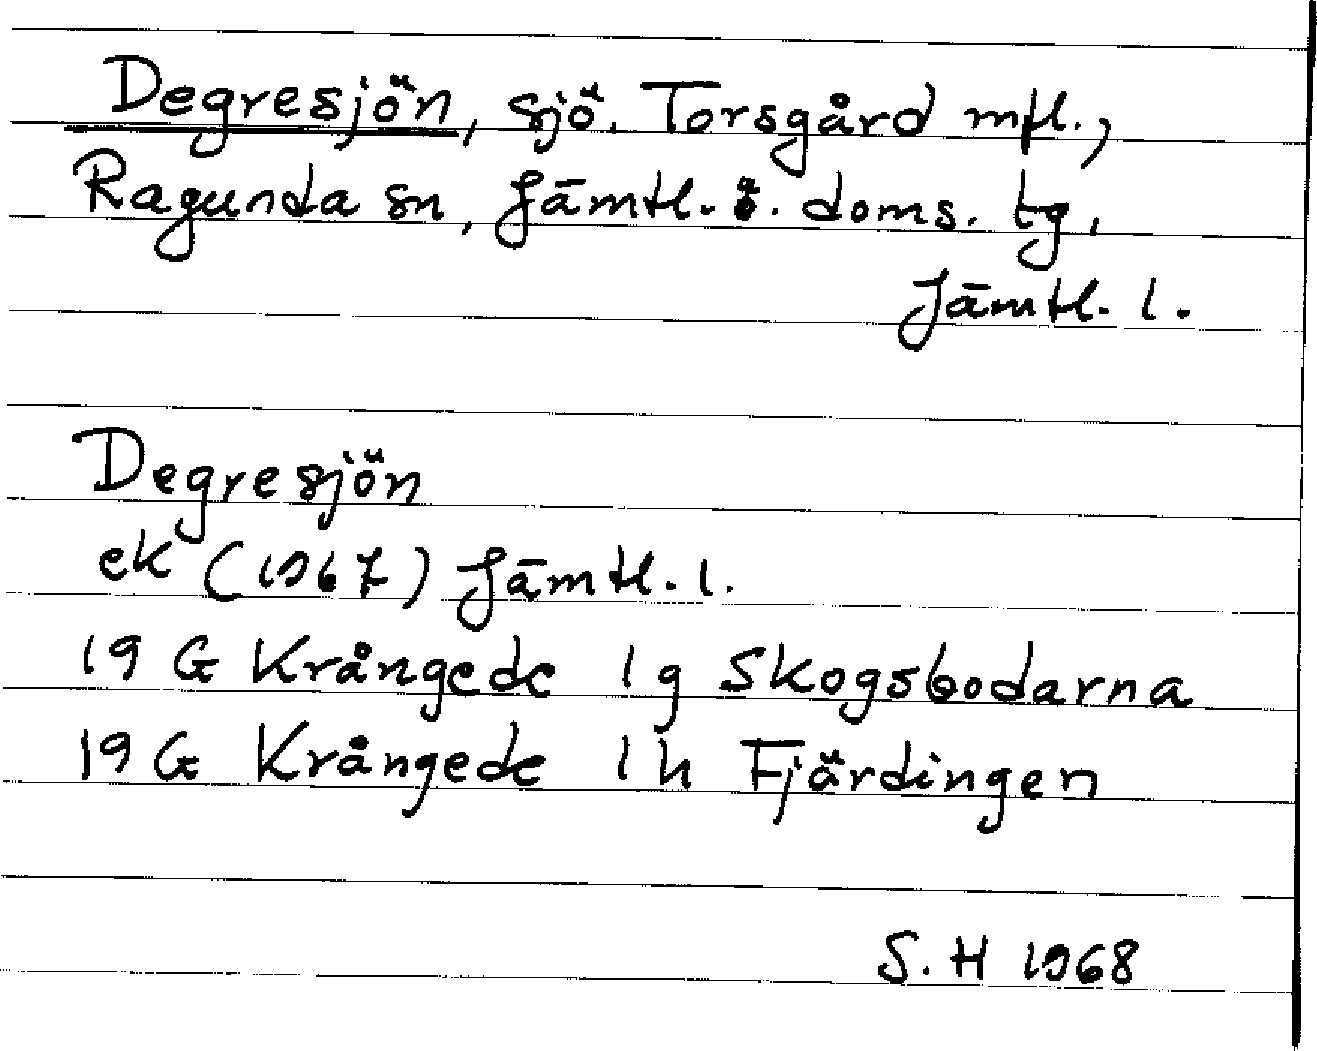 Degresjön, sjö. Torsgård mfl.,
Ragunda sn, Jämtl. ö. doms. tg,
Jämtl. l.
Degresjön
ek (1967) Jämtl. l.
19 G Krångede 1 g Skogsbodarna
19 G Krångede 1 h Fjärdingen
S. H 1968